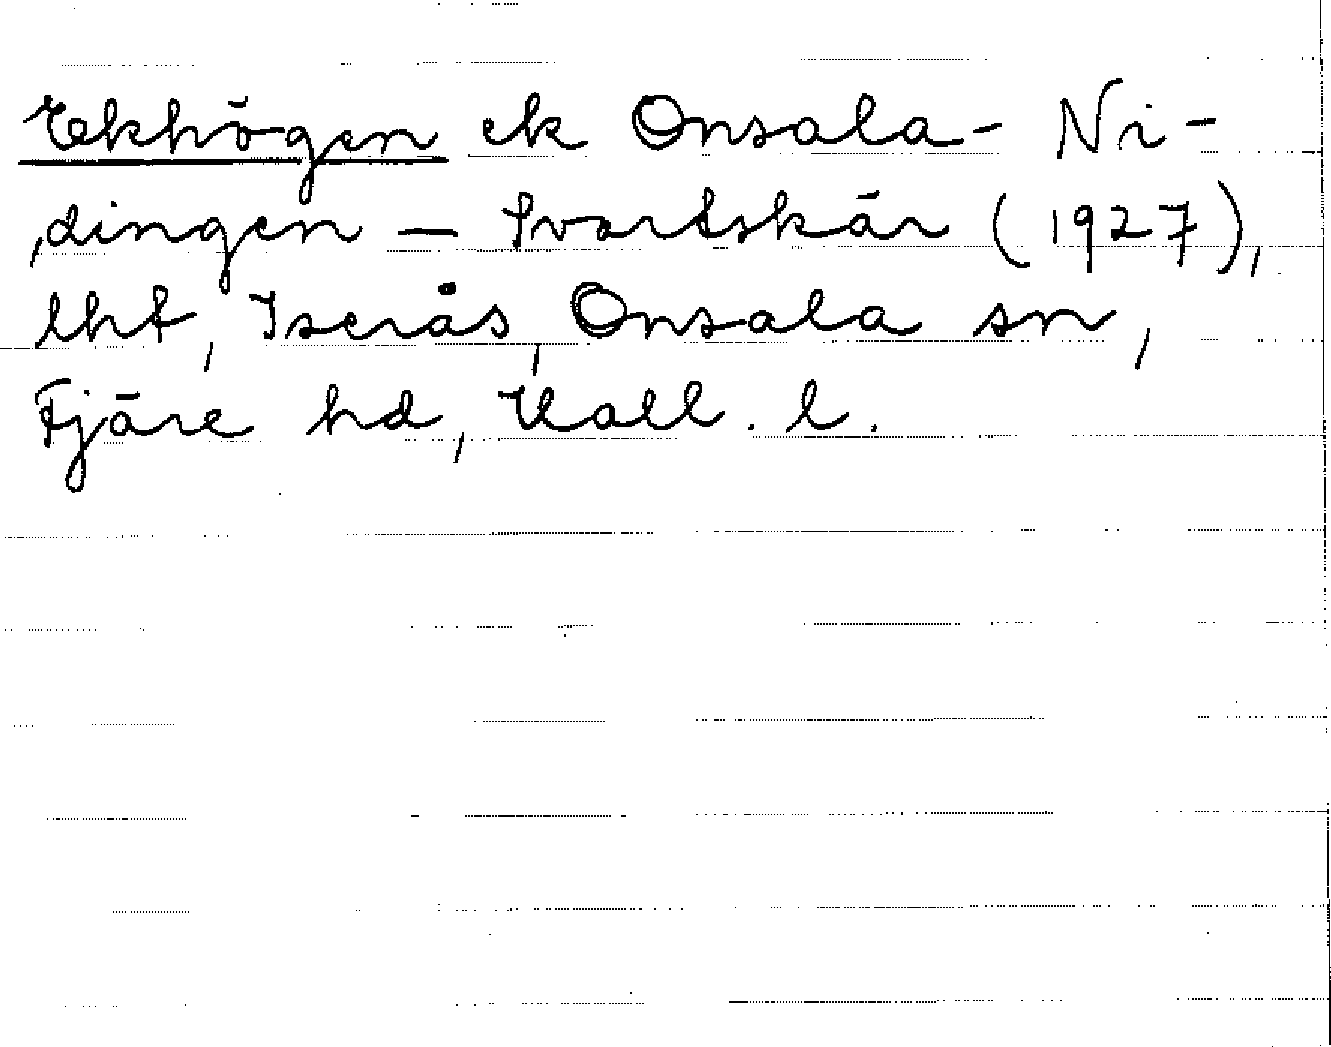 Ekhögen ek Onsala- Ni-
dingen – Svartskär (1927),
lht, Iserås, Onsala sn,
Fjäre hd, Hall. l.